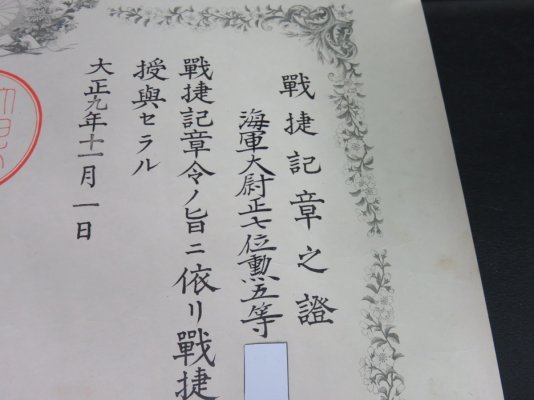 戰捷記章之證
海軍大尉正七位勲五等
戰捷記章令ノ旨ニ依リ戰捷
授與セラル
大正九年十一月一日